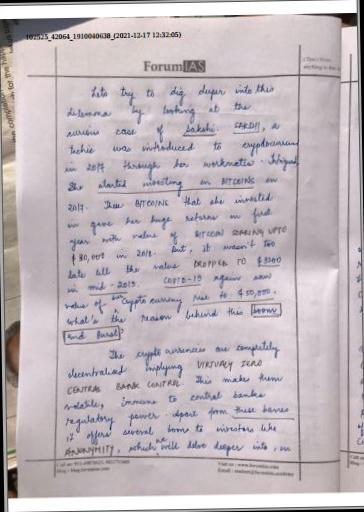 102525_42064_1910040638_(2021-12-17 12:32:05)
Forum IAS
Lets try to dig deeper into this
dilemma by looking at the
curious case of Sakshi. SAKSHI, a
techie was introduced to cryptocurrency
in 2017 through her workmates. Intrigued,
She started investing in BITCOINS in
2017. These BITCOINS that she invested
in gave her huge returns in first
year with value of BITCOIN SOARING UPTO
in 2018. But, it wasn't too
late till the value DROPPED TO
in mid-2019. COVID-19 again saw
value of her cryptocurrency rise to $50,000.
What's the reason behind this boom
and Burst?
The cryptocurrencies are completely
decentralised implying VIRTUALLY ZERO
CENTRAL BANK CONTROL. This makes them
volatile, immune to central banks
regulatory power. Apart from these
it offers several boons to investors like
ANONYMITY, which we will delve deeper into, in